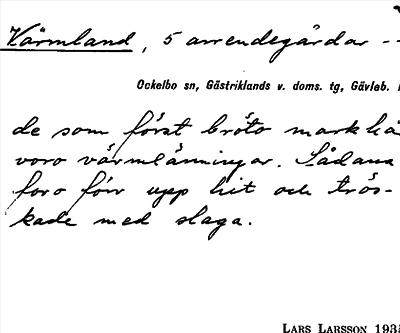 Värmland, 5 arrendegårdar --
Ockelbo sn, Gästriklands v. doms. tg, Gävleb.
de som först bröto mark hä
voro värmlänningar. Sådana
foro förr upp hit och trös-
kade med slaga.
LARS LARSSON 1935